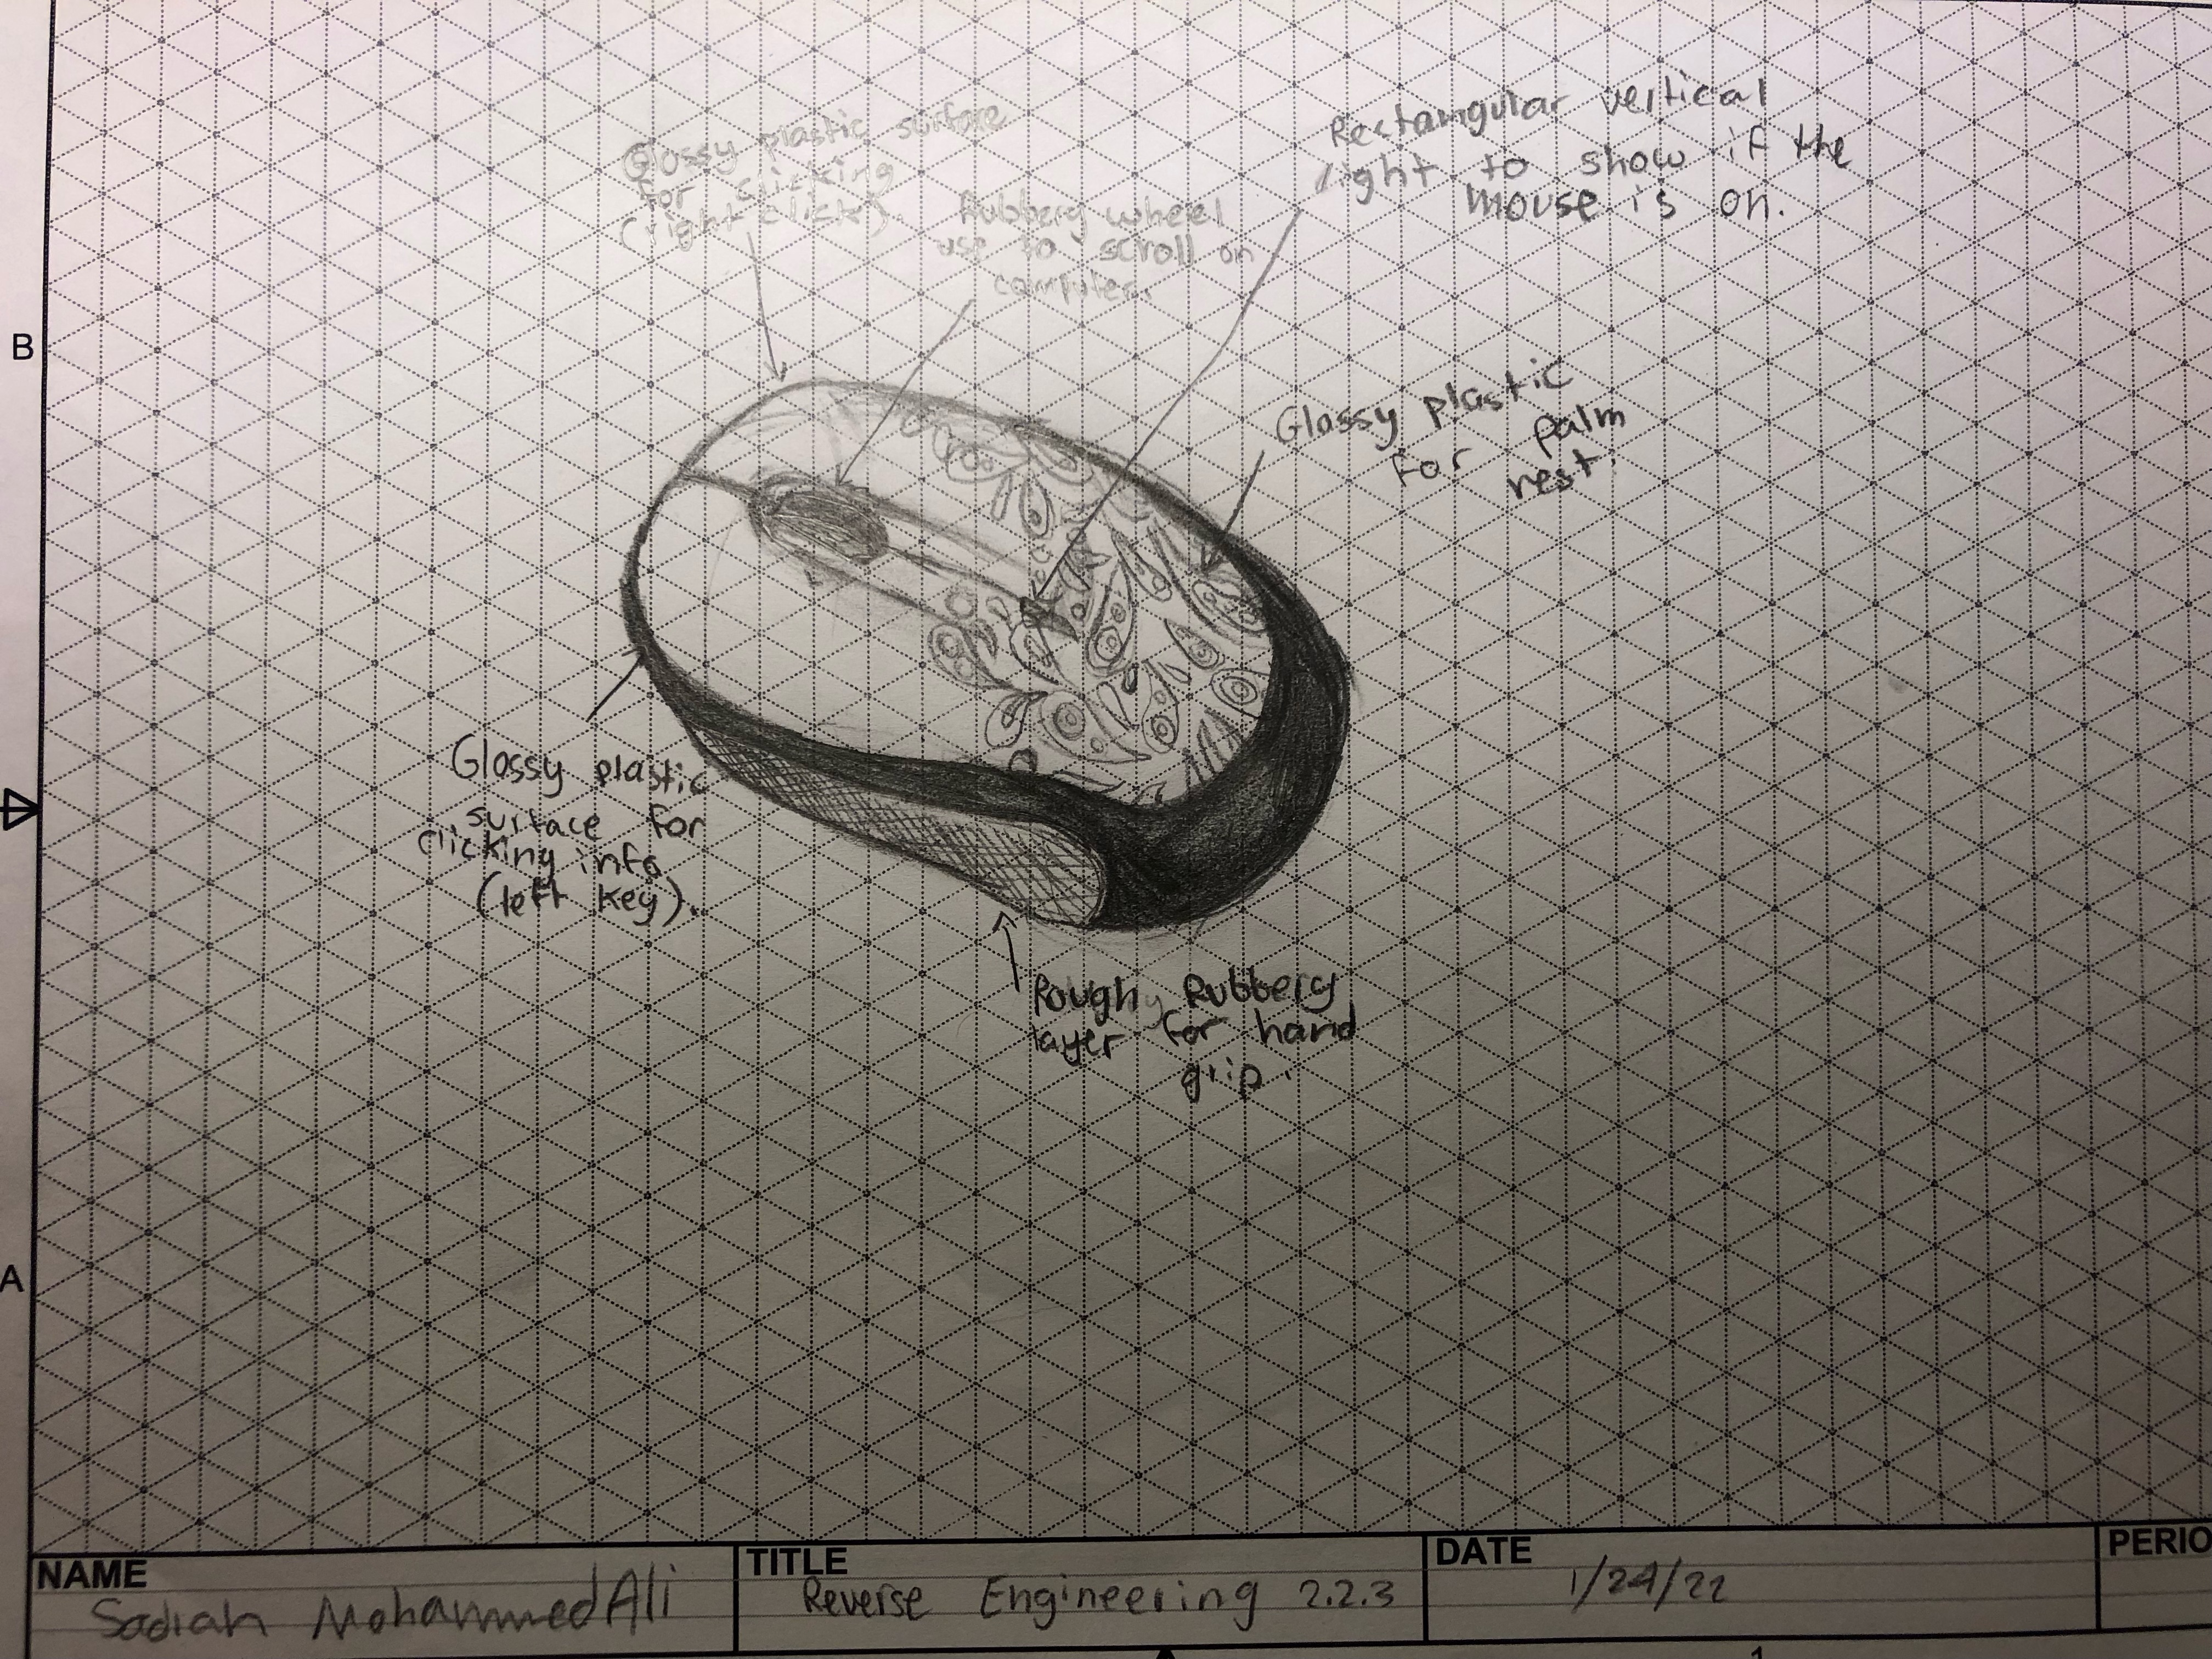 Glossy plastic surface
for clicking
(right click).
Rubbery wheel
use to scroll on
computer.
Rectangular vertical
light to show if the
mouse is on.
B
Glossy plastic
for palm
rest.
Glossy plastic
surface for
clicking info
(left key).
Rough Rubbery
layer for hand
grip.
A
NAME
Sadiah MohammedAli
TITLE
Reverse Engineering 2.2.3
DATE
1/24/22
PERIO
1